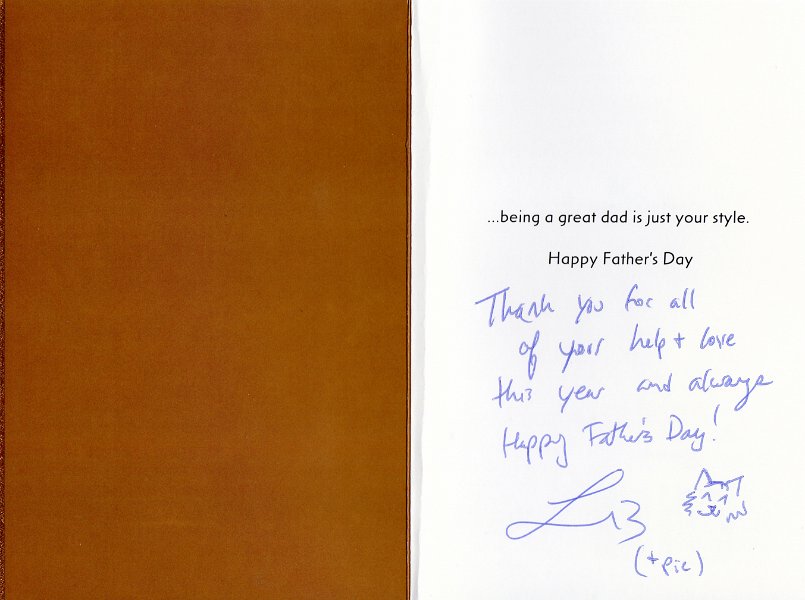 ...being a great dad is just your style.
Happy Father's Day
Thank you for all
of your help + love
this year and always
Happy Father's Day!
Liz
(+ pie)